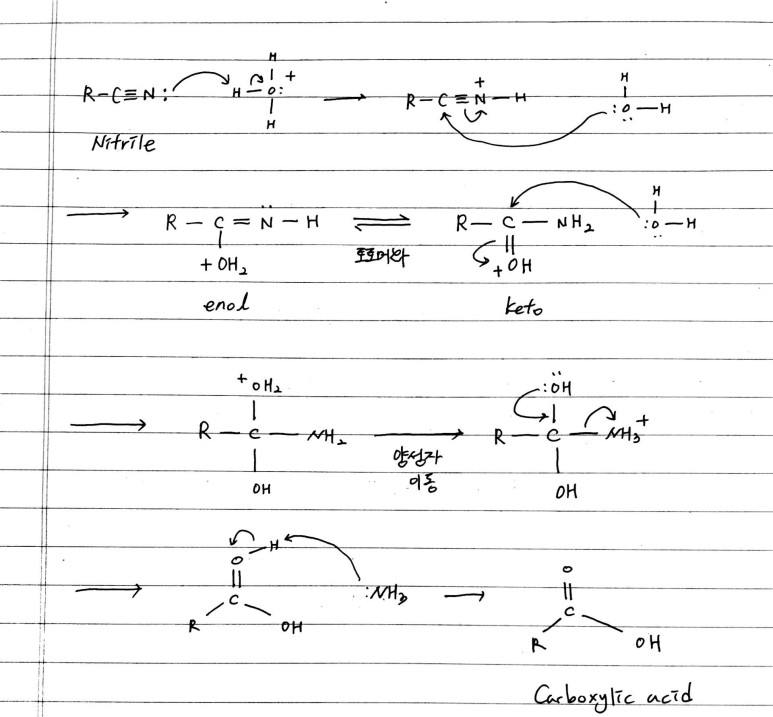 R-C≡N: H-O: + H H → R-C≡N-H + :O-H H
Nitrile
→ R-C=N-H ⇌ R-C-NH₂ :O-H H
+OH₂ 토토머화 +OH
enol keto
+OH₂ :ÖH
→ R-C-NH₂ → R-C-NH₃+
양성자
이동
OH OH
O-H O
→ C :NH₃ → C
R OH R OH
Carboxylic acid